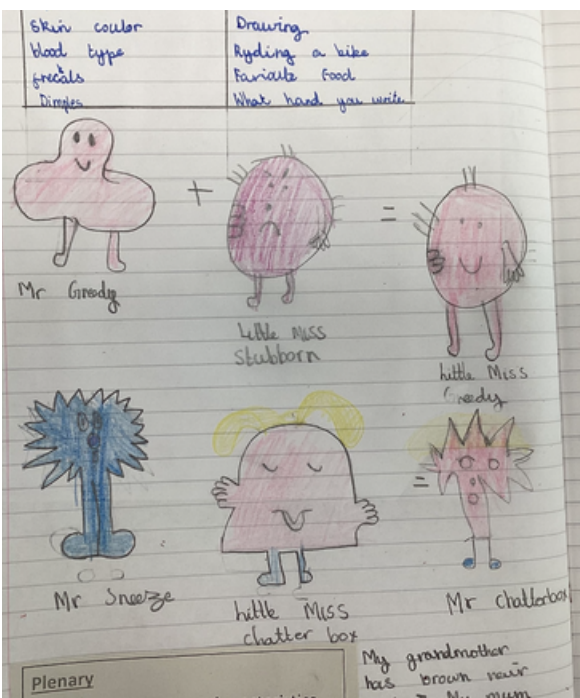 Skin coulor
blood type
frecals
Dimples
Drawing
Ryding a bike
Favioute food
What hand you write
+
=
Mr Greedy
Little Miss
Stubborn
Little Miss
Greedy
=
Mr Sneeze
Little Miss
chatter box
Mr Chatterbox
Plenary
My grandmother
has brown hair
My mum